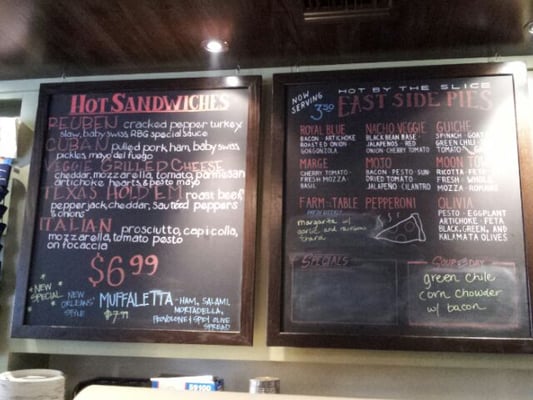 HOT SANDWICHES
REUBEN cracked pepper turkey
slaw, baby swiss, RBG special sauce
CUBAN pulled pork, ham, baby swiss,
pickles, mayo del fuego
VEGGIE GRILLED CHEESE
cheddar, mozzarella, tomato, parmesan
artichoke hearts & pesto mayo
TEXAS HOLD 'EM roast beef,
pepperjack, cheddar, sauteed peppers
& onions
ITALIAN prosciutto, capicolla,
mozzarella, tomato pesto
on focaccia
$6.99
NEW SPECIAL
NEW ORLEANS' STYLE
MUFFALETTA - HAM, SALAMI,
MORTADELLA,
$7.99
PROVOLONE & SPICY OLIVE
SPREAD
NOW SERVING
3.50
HOT BY THE SLICE
EAST SIDE PIES
ROYAL BLUE
BACON - ARTICHOKE
ROASTED ONION
GORGONZOLA
NACHO VEGGIE
BLACK BEAN BASE
JALAPENOS - RED
ONION - CHERRY TOMATO
GUICHE
SPINACH - GOAT
GREEN CHILE
TOMATO
MARGE
CHERRY TOMATO
FRESH MOZZA
BASIL
MOTO
BACON - PESTO - SUN
DRIED TOMATO
JALAPENO - CILANTRO
MOON TOW
RICOTTA - FETA
FRESH - WHOLE
MOZZA - ROMANO
FARM-TO-TABLE
margarita w/
garlic and
PEPPERONI
OLIVIA
PESTO - EGGPLANT
ARTICHOKE - FETA
BLACK, GREEN, AND
KALAMATA OLIVES
SPECIALS
SOUP O' DAY
green chile
corn chowder
w/ bacon